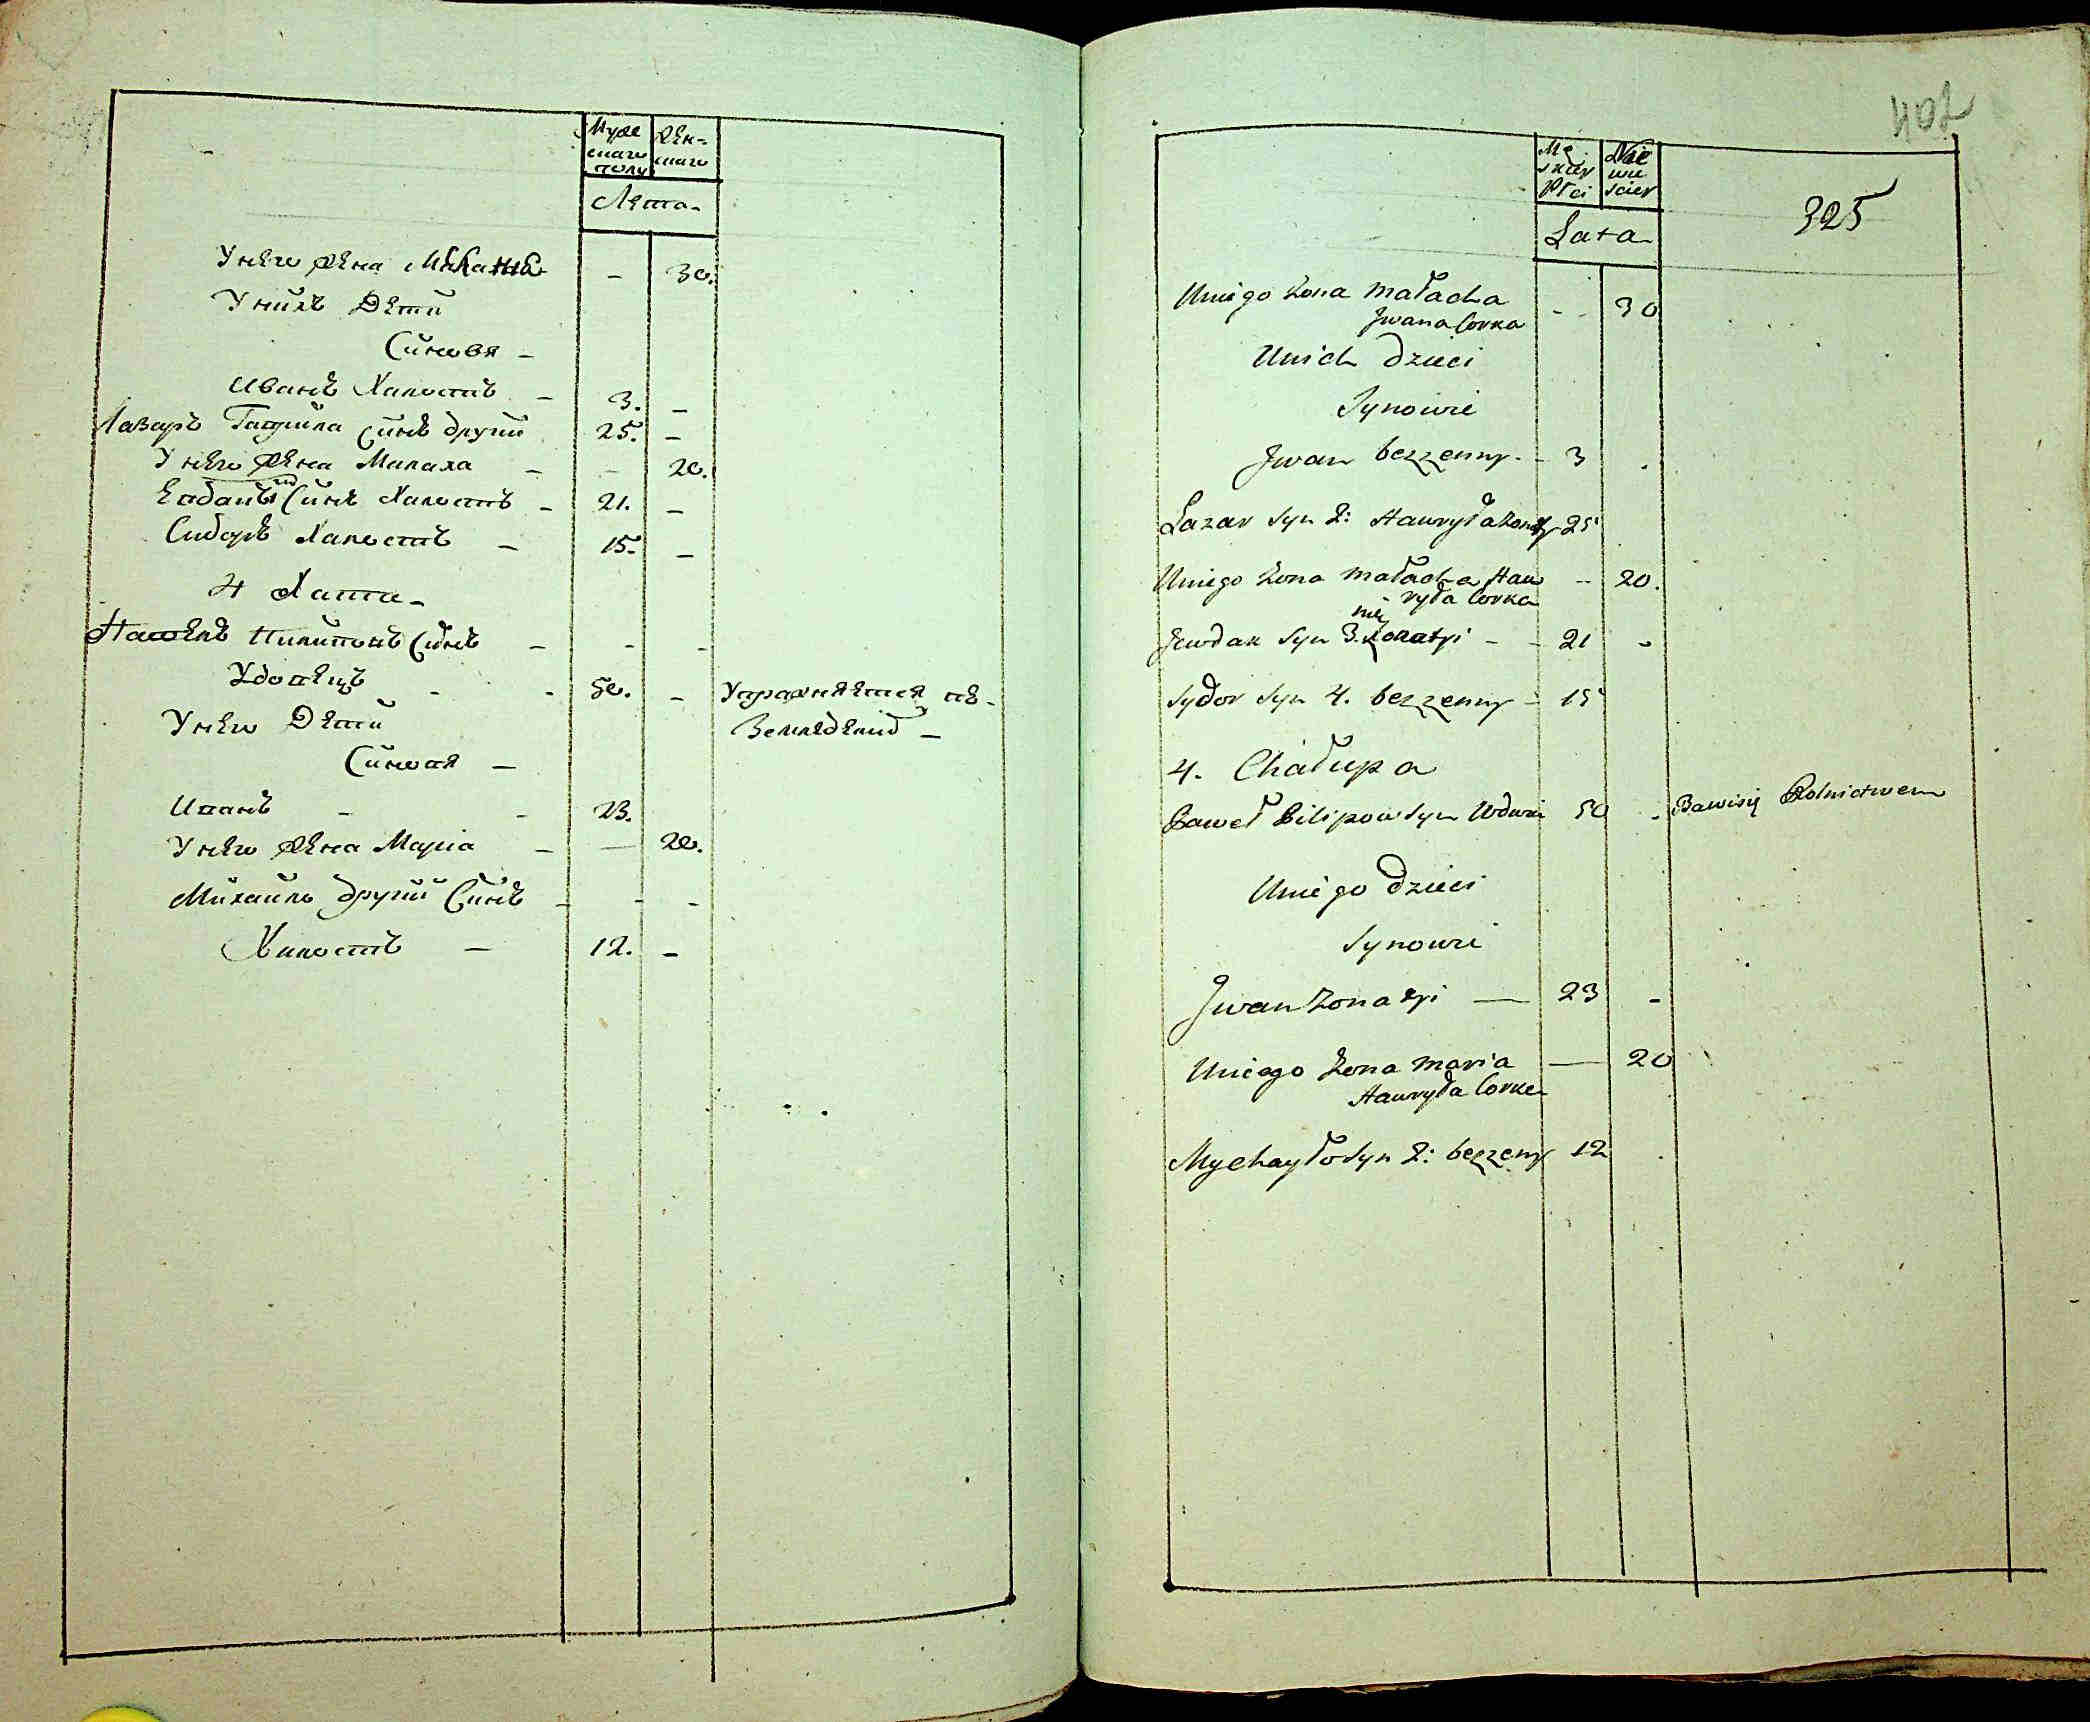 Муже
скаго
полу
Жен=
скаго
Лета.
Унего жена - 30.
Унихъ Дети
Синовя -
Иванъ Халостъ - 3. -
Лазаръ Гаврила синъ другий 25. -
Унего жена Малаха - - 20.
Синъ Халостъ - 21. -
Сидоръ Халостъ - 15. -
4 Хата -
Павелъ Пилиповъ Синъ - - -
Удовецъ - - 50. - Упражняется въ-
Земледелии -
Унего Дети
Синовя -
Иванъ - - 23.
Унего жена Марiа - — 20.
Михаилъ другий Синъ - - -
Халостъ - 12. -
402
325
Mę
skiey
Płci
Nie
wie
sciey
Lata
Uniego żona Małacha - - 30
Jwana Corka
Unich dzieci
Synowie
Jwan bezzenny - 3 .
Lazar syn 2: Hauryła żonaty 25
Uniego żona Małacha Hau - 20.
ryła Corka
nie
Jewdak syn 3. żonatyi - - 21 -
Sydor syn 4. bezzenny - 15
4. Chałupa
Paweł Pilipow syn Wdowi 50 - Bawisię Rolnictwem
Uniego dzieci
Synowie
Jwan żonatyi — 23 -
Uniego żona Maria — 20
Hauryła Corka
Mychayło syn 2: bezzeny 12 .